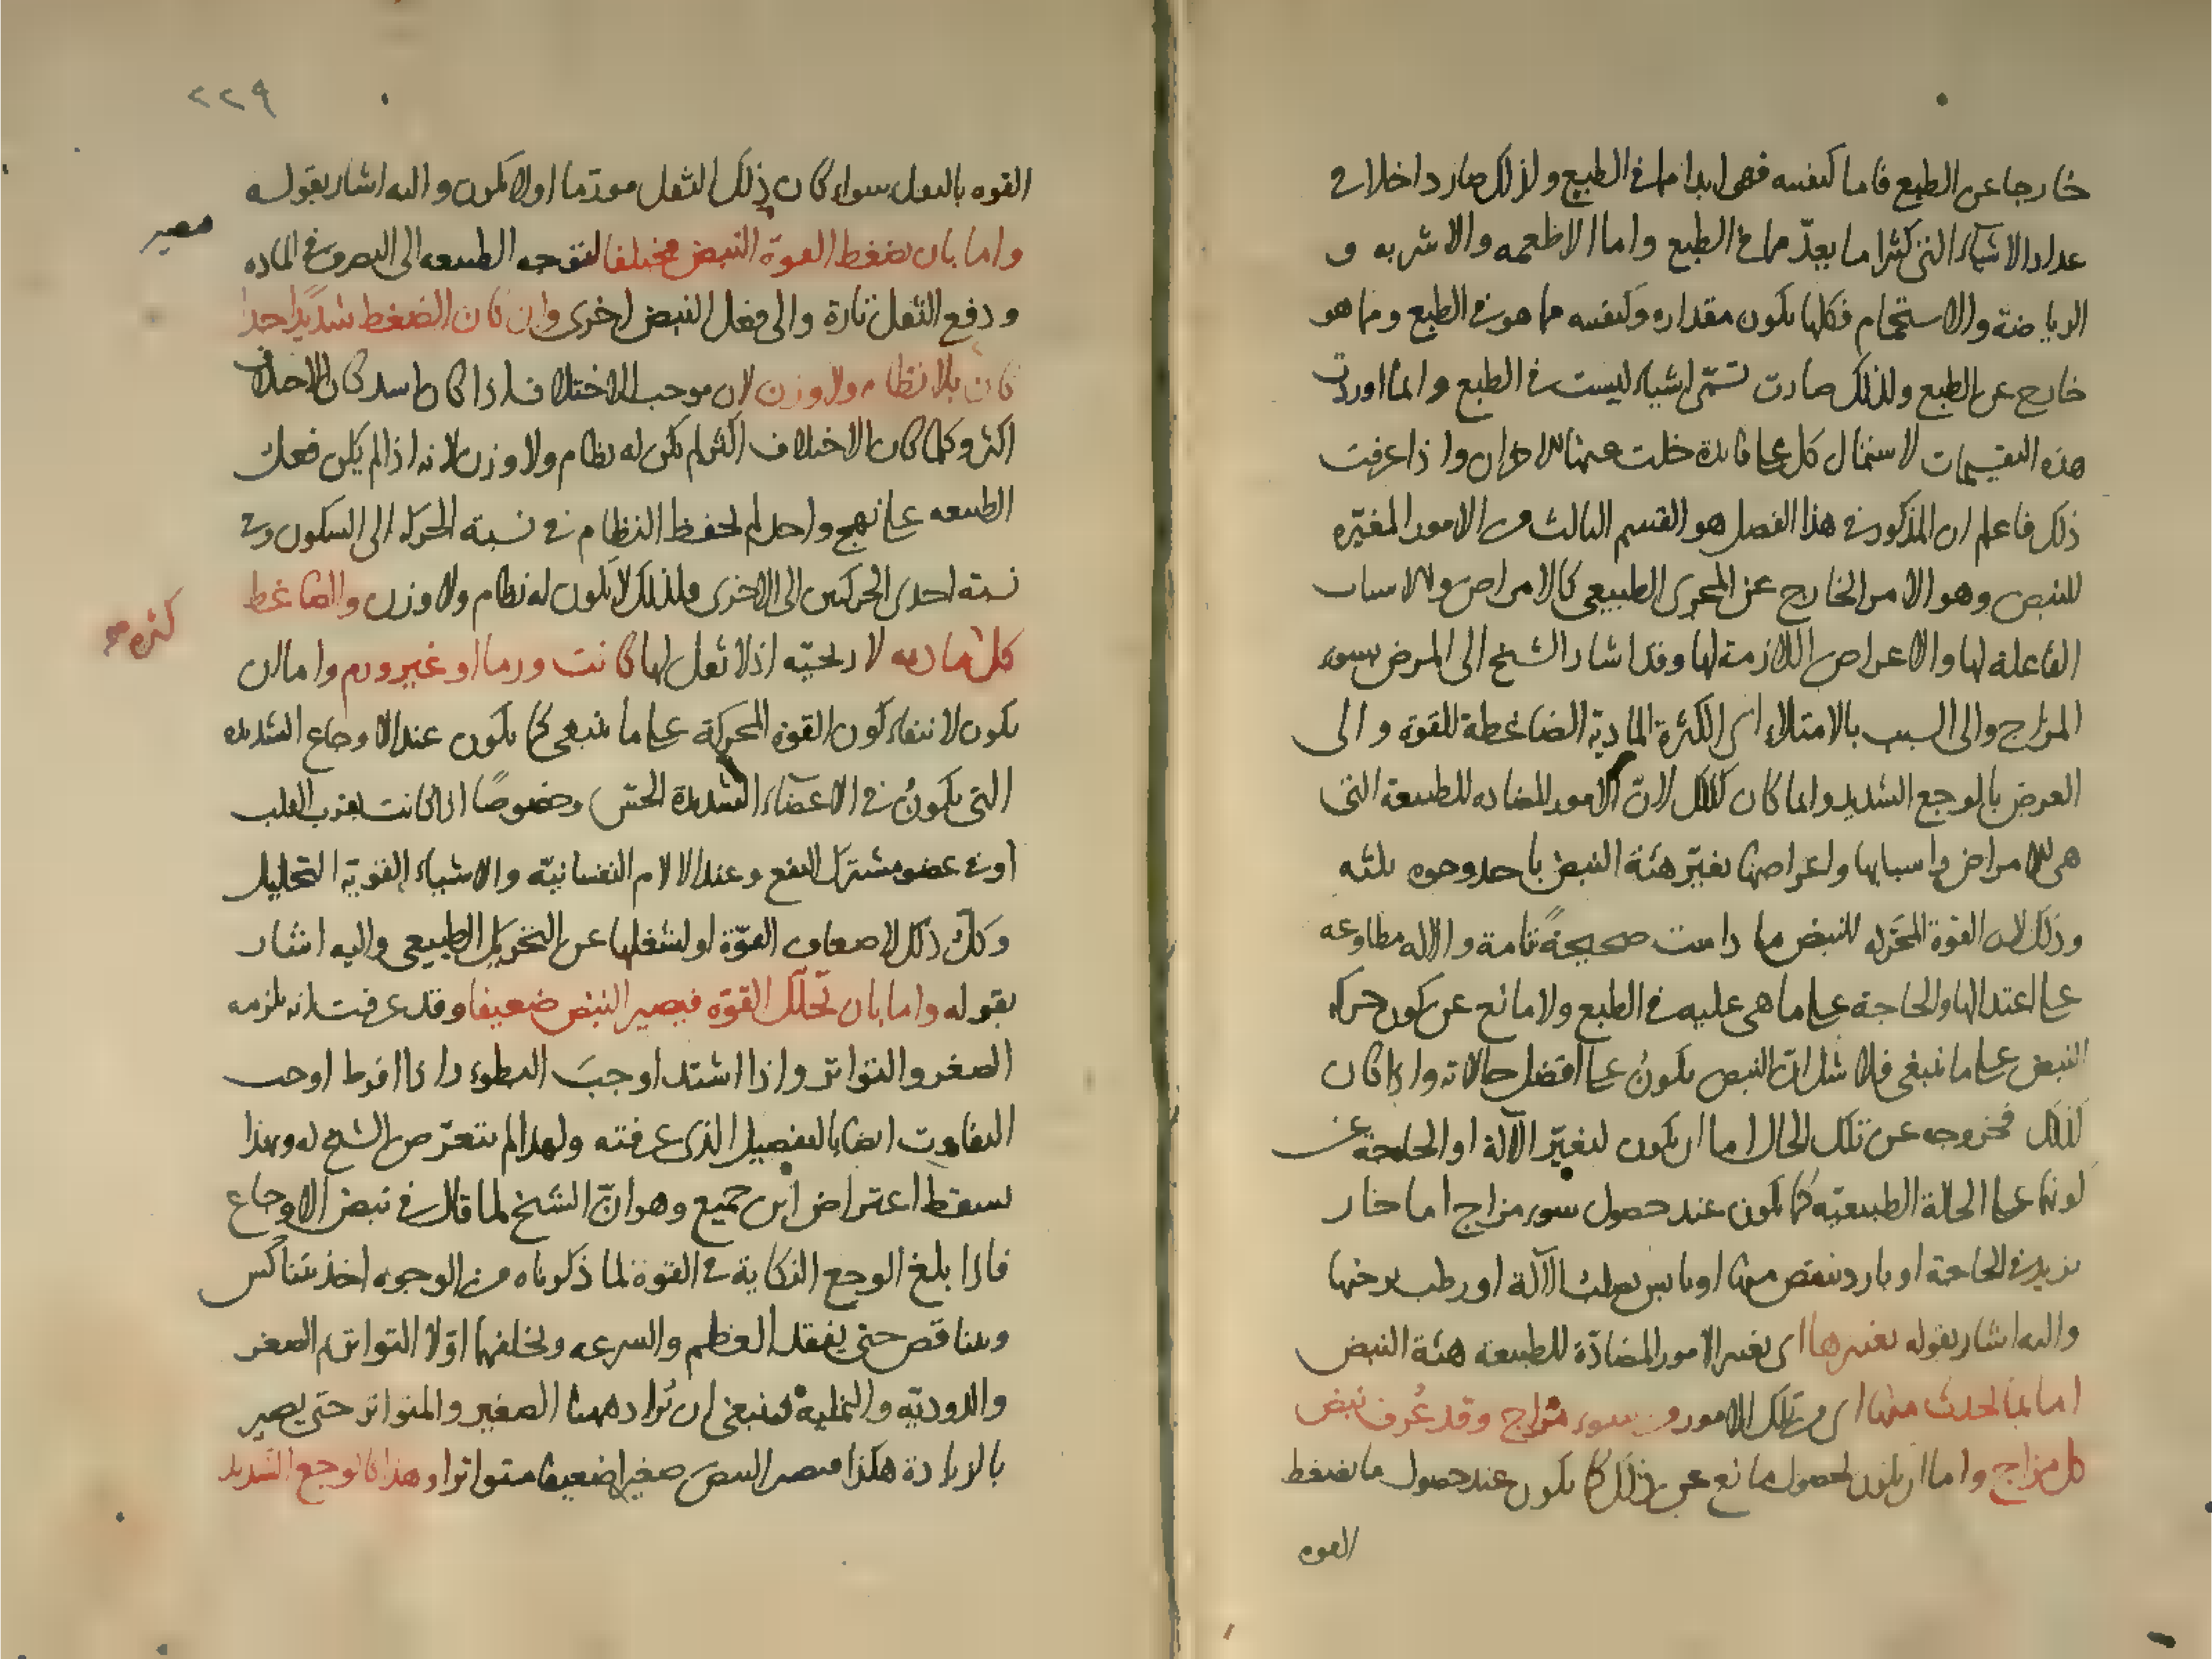 خارجا عن الطبع فاما كيفيته فهو ابدا مما في الطبع ولذلك صار داخلا في
عداد الاشياء التي كثيرا ما يعدّ مما في الطبع واما الاطعمه والاشربه و
الرياضة والاستحمام فكلها يكون مقداره وكيفيته مما هو في الطبع ومما هو
خارج عن الطبع ولذلك صارت تسمّى اشياء ليست في الطبع وانما اوردت
هذه التقسيمات لاشتمال كل على فائدة خلت عنها الاخران واذا عرفت
ذلك فاعلم ان المذكور في هذا الفصل هو القسم الثالث من الامور المغيّره
للنبض وهو الامر الخارج عن المجرى الطبيعي كالامراض والاسباب
الفاعلة لها والاعراض اللازمة لها وقد اشار الشيخ الى المرض بسوء
المزاج والى السبب بالامتلاء اى الكثرة الماديّة الضاغطة للقوة والى
العرض بالوجع الشديد وانما كان كذلك لانّ الامور المضاده للطبيعة التي
هي الامراض واسبابها واعراضها يغيّر هئة النبض باحد وجوه ثلثه
وذلك لان القوة المحركه للنبض ما دامت صحيحةً تامة والاله مطاوعه
على اعتدالها والحاجة على ما هي عليه في الطبع ولا مانع عن كون حركه
النبض على ما ينبغي فلا شك ان النبض يكونُ على افضل حالاته واذا كان
كذلك فخروجه عن تلك الحال اما ان يكون لتغيّر الآلة او الحاجة عن
كونها على الحالة الطبيعيّه كما يكون عند حصول سوء مزاج اما حار
يزيد في الحاجة او بارد ينقص منها او يابس يصلب الآلة او رطب يرخيها
واليه اشار بقوله يغيرها اى يغير الامور المضادّة للطبيعة هئة النبض
اما بما يحدث منها اى من تلك الامور من سوء مزاج وقد عُرف نبض
كل مزاج واما ان يكون لحصول مانع عن ذلك كما يكون عند حصول ما يضغط
القوه
٢٢٩
القوه بالثقل سواء كان ذلك الثقل مورّما اولا يكون واليه اشار بقوله
واما بان يضغط القوة النبض مختلفا لتوجه الطبيعه الى التصرف في الماده
يصير
ودفع الثقل تارة والى فعل النبض اخرى وان كان الضغط شديدًا جدا
كان بلا نظام ولا وزن لان موجب الاختلاف اذا كان اشد كان الاختلاف
اكثر وكلما كان الاختلاف اكثر لم يكن له نظام ولا وزن لانه اذا لم يكن فعل
الطبيعه على نهج واحد لم يحفظ النظام في نسبة الحركه الى السكون وفي
نسبة احدى الحركتين الى الاخرى فلذلك لا يكون له نظام ولا وزن والضاغط
كثره
كل مادية لا ريحيّه اذ لا ثقل لها كانت ورما او غير ورم واما ان
يكون لانتفاء كون القوة المحركة على ما ينبغي كما يكون عند الاوجاع الشديده
التي يكونُ في الاعضاء الشديدة الحسّ وخصوصًا اذا كانت بقرب القلب
او في عضو مشترك النفع وعند الالام النفسانيّة والاشياء القويّة التحليل
وكلّ ذلك لاضعاف القوّة او لشغلها عن التحريك الطبيعي واليه اشار
بقوله واما بان تحلّل القوّه فيصير النبض ضعيفا وقد عرفت انه يلزمه
الصغر والتواتر واذا اشتد اوجبَ البطوء واذا افرط اوجب
التفاوت ايضا بالتفصيل الذي عرفته ولهذا لم يتعرّض الشيخ له وبهذا
سقط اعتراض ابن جميع وهو انّ الشيخ لما قال في نبض الاوجاع
فاذا بلغ الوجع النكاية في القوة لما ذكرناه من الوجوه اخذ يتناكس
ويتناقص حتى يفقد العظم والسرعه ويخلفهما اوّلا التواتر ثم الصغر
والدوديّه والنمليه فينبغي ان يُزاد ههنا الصغير والمتواتر حتى يصير
بالزيادة هكذا فيصير النبض صغيرا ضعيفا متواترا وهذا كالوجع الشديد